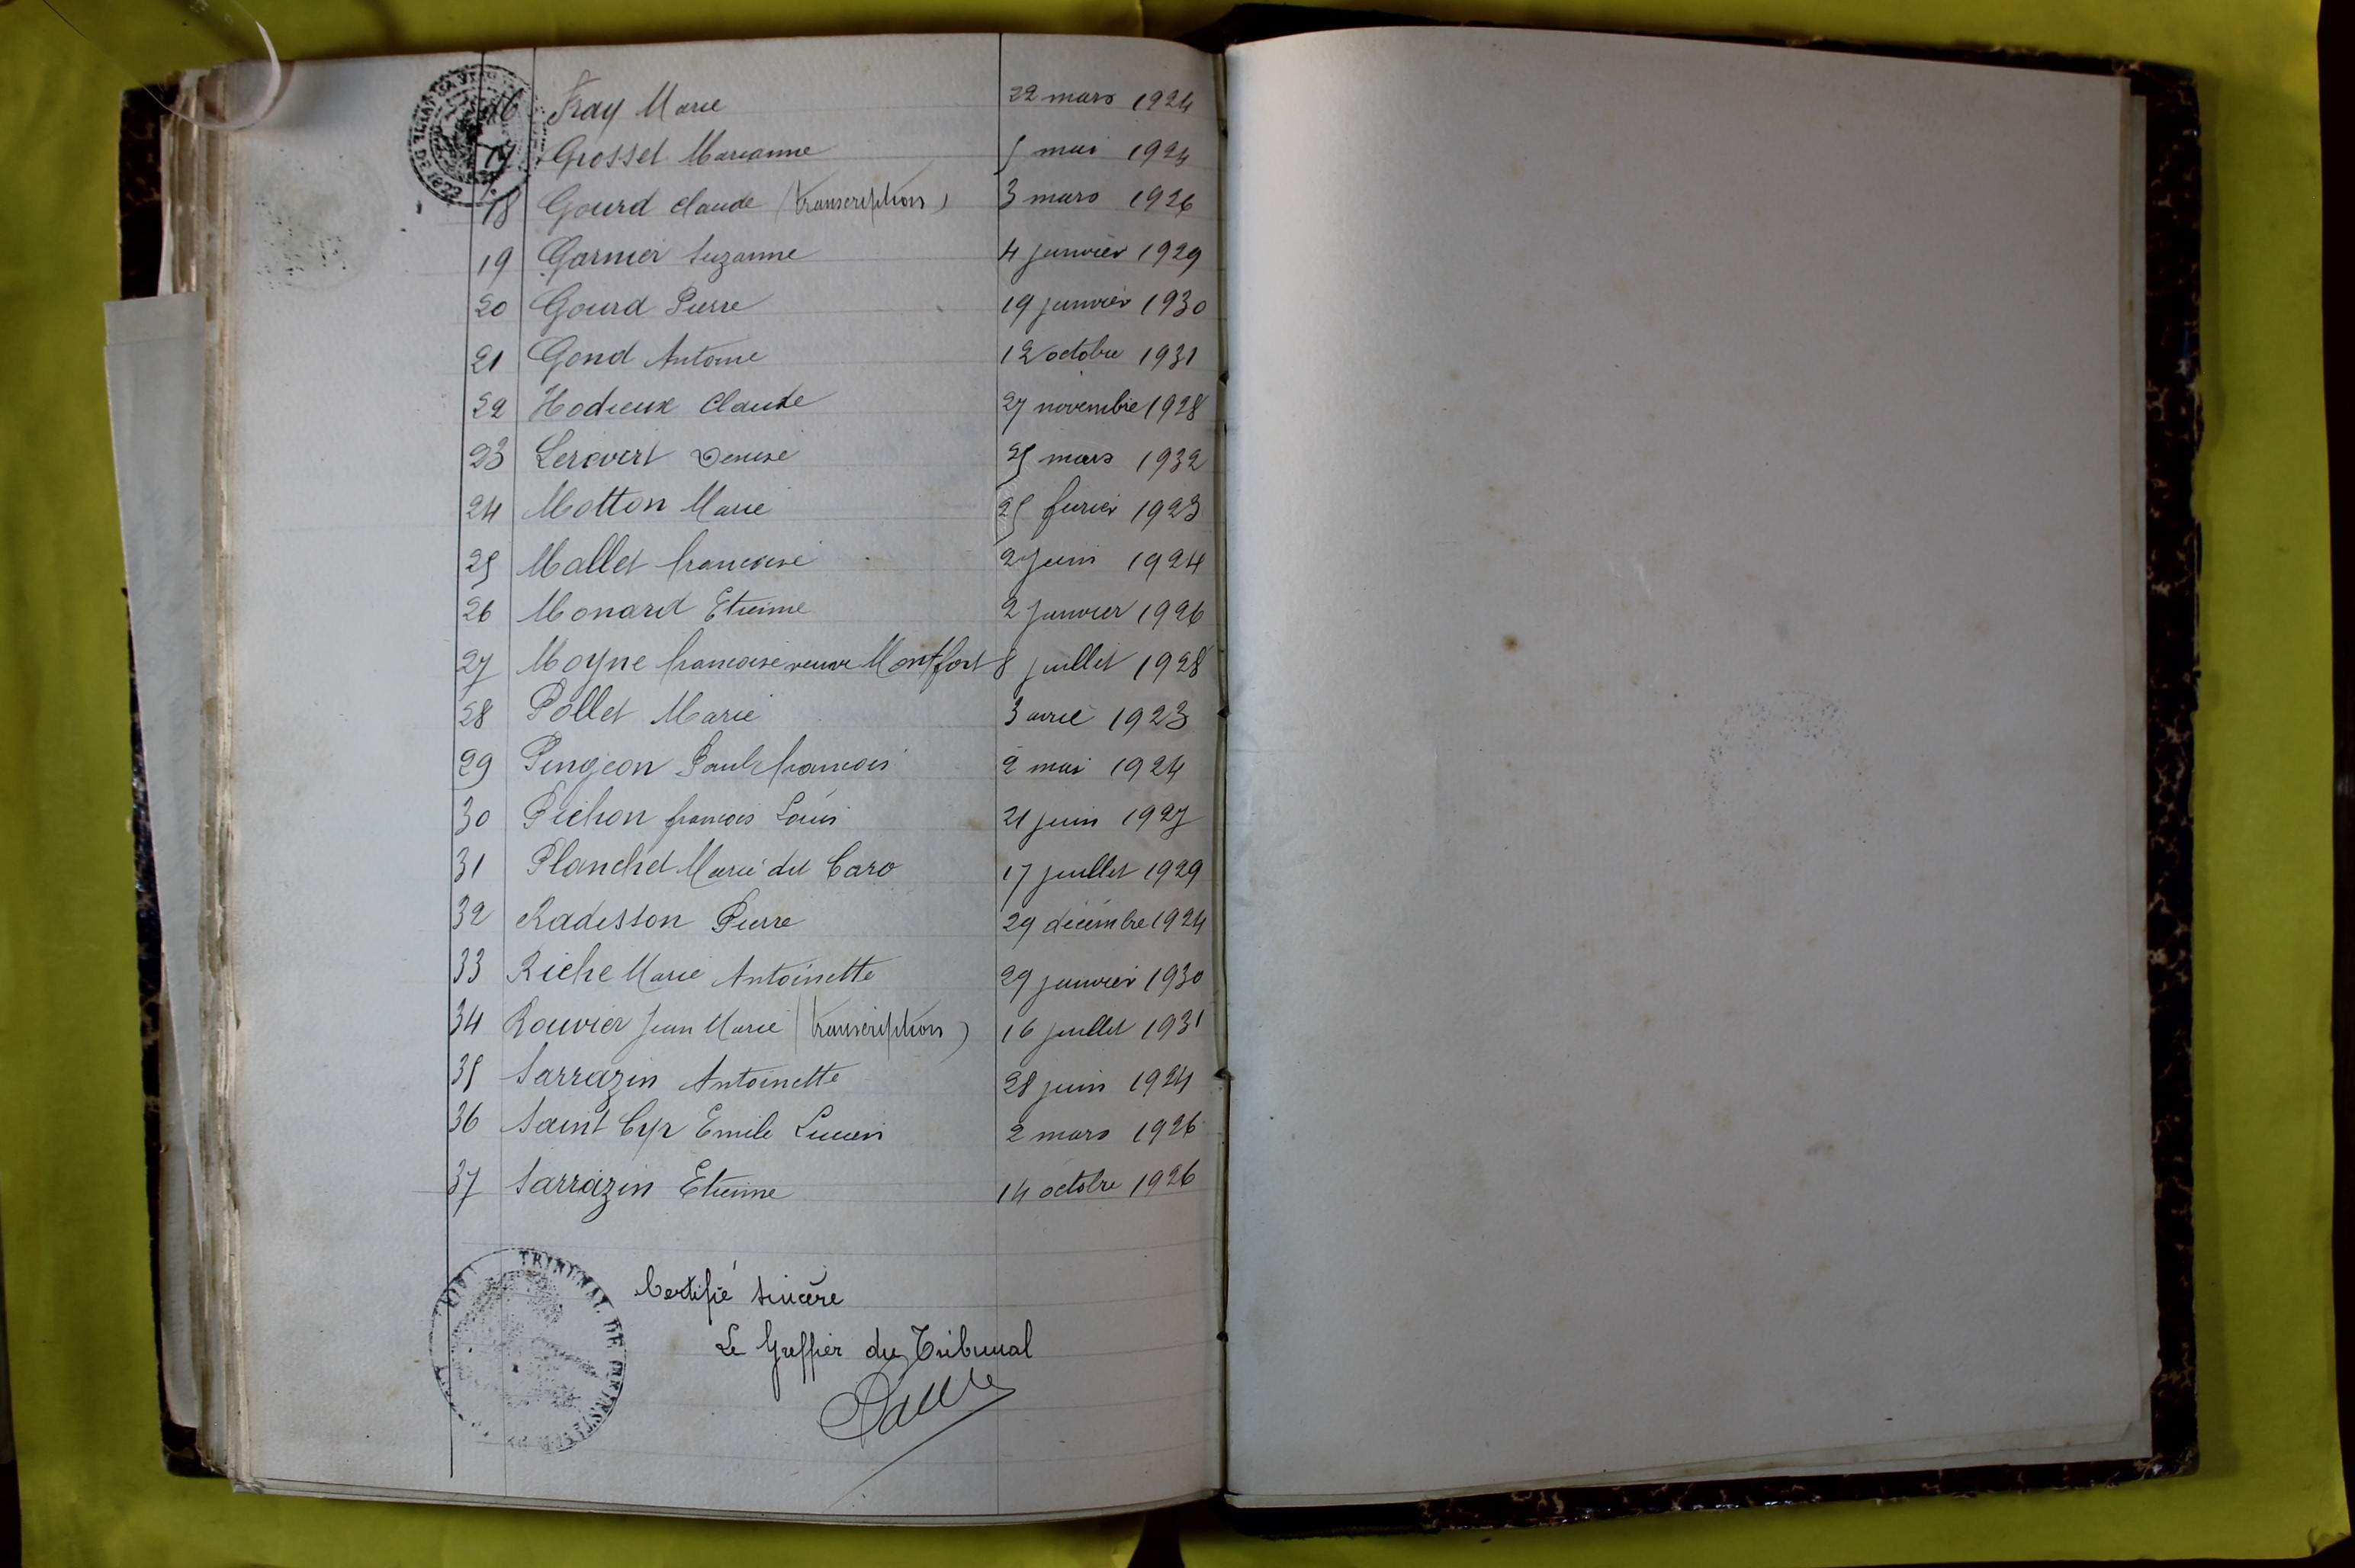 16 Fray Marie 22 mars 1924
17 Grosset Marianne 5 mai 1924
18 Gourd Claude (transcription) 3 mars 1926
19 Garnier Suzanne 4 janvier 1929
20 Gourd Pierre 19 janvier 1930
21 Gond Antoine 12 octobre 1931
22 Hodieux Claude 27 novembre 1928
23 Leravert Denise 25 mars 1932
24 Motton Marie 25 fevrier 1923
25 Mallet francoise 2 juin 1924
26 Monard Etienne 2 janvier 1926
27 Moyne francoise veuve Montfort 8 juillet 1928
28 Pollet Marie 3 avril 1923
29 Pingeon Paul francois 2 mai 1924
30 Pichon francois Louis 21 juin 1927
31 Planchet Marie dit Caro 17 juillet 1929
32 Radisson Pierre 29 décembre 1924
33 Riche Marie Antoinette 29 janvier 1930
34 Rouvier Jean Marie (transcription) 16 juillet 1931
35 Sarrazin Antoinette 28 juin 1924
36 Saint Cyr Emile Lucien 2 mars 1926
37 Sarrazin Etienne 14 octobre 1926
TRIBUNAL DE
Certifié sincère
Le Greffier du Tribunal